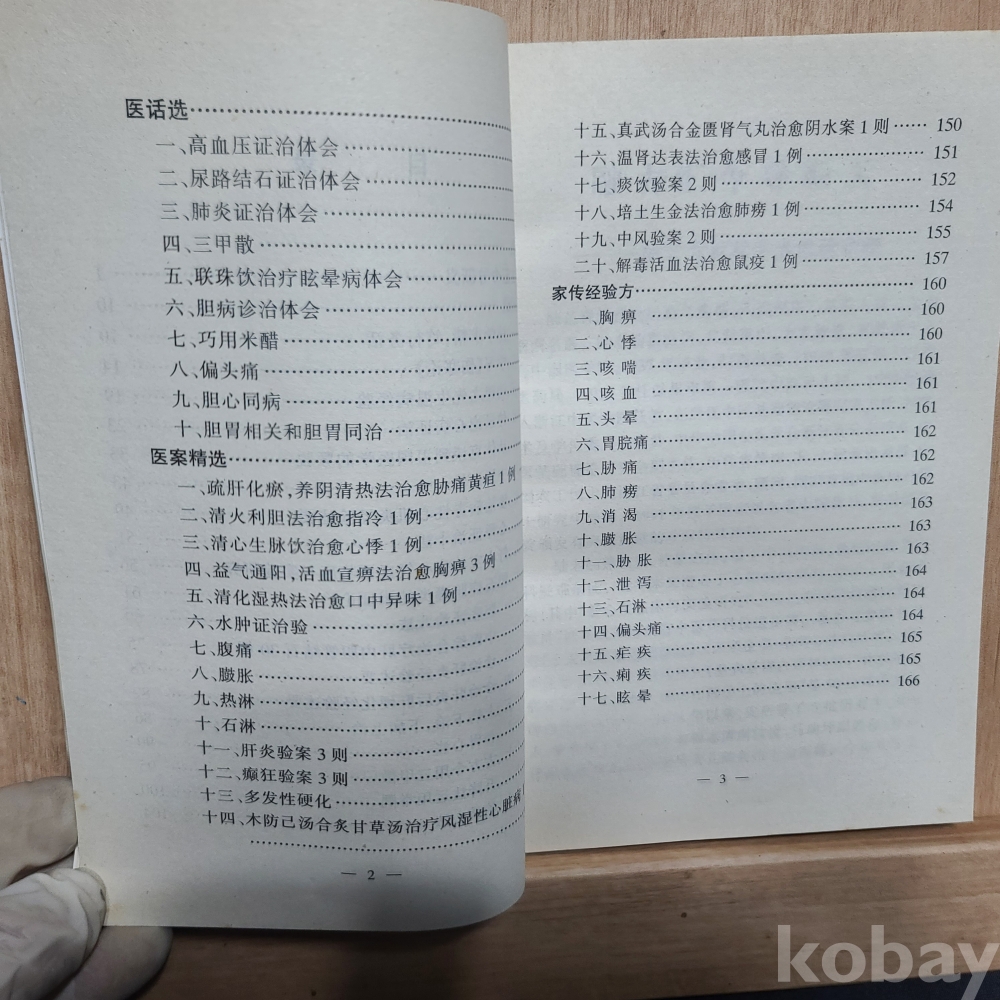 医话选……………………
一、高血压证治体会……………………
二、尿路结石证治体会……………………
三、肺炎证治体会……………………
四、三甲散……………………
五、联珠饮治疗眩晕病体会……………………
六、胆病诊治体会……………………
七、巧用米醋……………………
八、偏头痛……………………
九、胆心同病……………………
十、胆胃相关和胆胃同治……………………
医案精选……………………
一、疏肝化瘀,养阴清热法治愈胁痛黄疸1例
二、清火利胆法治愈指冷1例……………………
三、清心生脉饮治愈心悸1例……………………
四、益气通阳,活血宣痹法治愈胸痹3例
五、清化湿热法治愈口中异味1例……………………
六、水肿证治验……………………
七、腹痛……………………
八、臌胀……………………
九、热淋……………………
十、石淋……………………
十一、肝炎验案3则……………………
十二、癫狂验案3则……………………
十三、多发性硬化……………………
十四、木防己汤合炙甘草汤治疗风湿性心脏病
……………………
— 2 —
十五、真武汤合金匮肾气丸治愈阴水案1则…… 150
十六、温肾达表法治愈感冒1例…………… 151
十七、痰饮验案2则…………………… 152
十八、培土生金法治愈肺痨1例…………… 154
十九、中风验案2则…………………… 155
二十、解毒活血法治愈鼠疫1例…………… 157
家传经验方…………………… 160
一、胸痹…………………… 160
二、心悸…………………… 160
三、咳喘…………………… 161
四、咳血…………………… 161
五、头晕…………………… 161
六、胃脘痛…………………… 162
七、胁痛…………………… 162
八、肺痨…………………… 162
九、消渴…………………… 163
十、臌胀…………………… 163
十一、胁胀…………………… 163
十二、泄泻…………………… 164
十三、石淋…………………… 164
十四、偏头痛…………………… 164
十五、疟疾…………………… 165
十六、痢疾…………………… 165
十七、眩晕…………………… 166
— 3 —
kobay